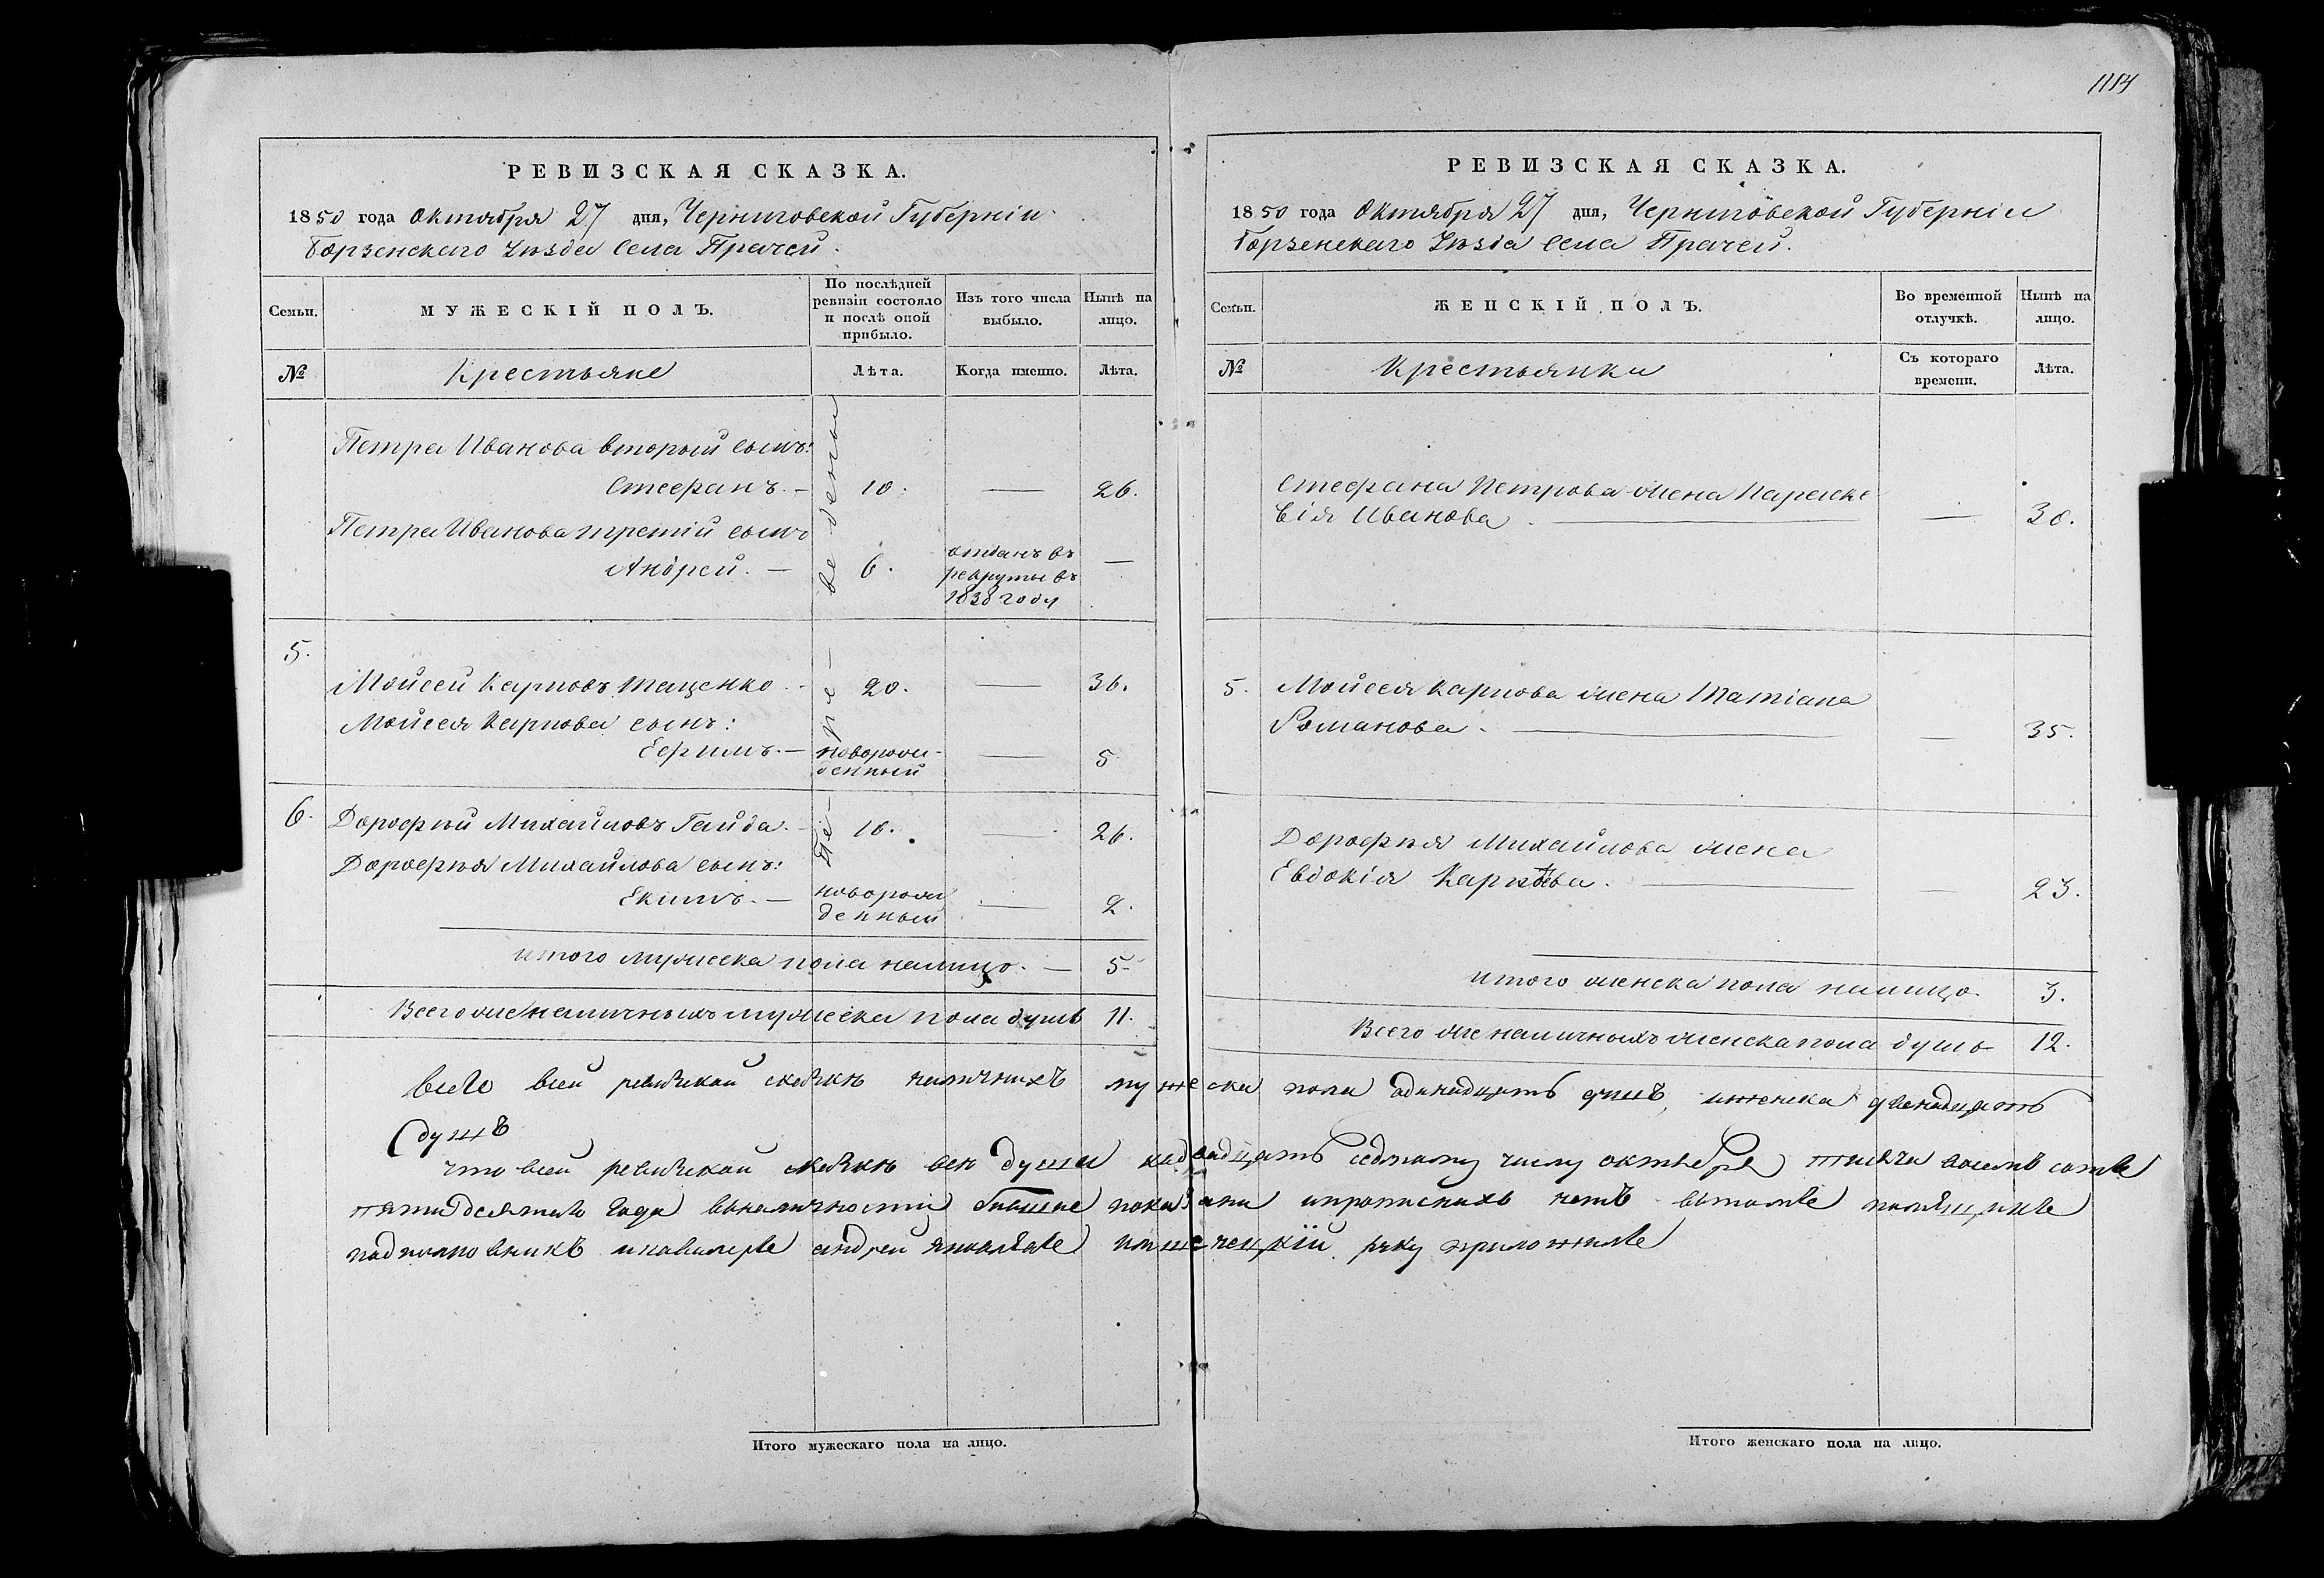 1114
РЕВИЗСКАЯ СКАЗКА.
1850 года Октября 27 дня, Черниговской Губерніи
Борзенскаго Уѣзда Села Прачей.
Семьи.
МУЖЕСКІЙ ПОЛЪ.
По послѣдней
ревизіи состояло
и послѣ оной
прибыло.
Изъ того числа
выбыло.
Нынѣ на
лицо.
№
Крестьяне
Лѣта.
Когда именно.
Лѣта.
Петра Иванова второй сынъ:
Стефанъ. — 10. — 26.
Петра Иванова третій сынъ
Андрей. — 6. отданъ въ
рекруты въ
1838 году —
5.
Мойсей Карповъ Тащенко. 20. — 36.
Мойсея Карпова сынъ:
Ефимъ. — новорож-
денный — 5
6. Дорофѣй Михайловъ Гайда. 10. — 26.
Дорофѣя Михайлова сынъ:
Екимъ. — новорож
денный — 2.
итого мужеска пола налицо. — 5
Всего же наличныхъ мужеска пола душъ 11.
Итого мужескаго пола на лицо.
РЕВИЗСКАЯ СКАЗКА.
1850 года Октября 27 дня, Черниговской Губерніи
Борзенскаго Уѣзда Села Прачей.
Семьи.
ЖЕНСКІЙ ПОЛЪ.
Во временной
отлучкѣ.
Нынѣ на
лицо.
№
Крестьянки
Съ котораго
времени.
Лѣта.
Стефана Петрова жена Параске
вія Иванова. — 30.
5. Мойсея Карпова жена Татіана
Романова. — 35.
Дорофѣя Михайлова жена
Евдокія Карпова. — 23.
итого женска пола налицо. 3.
Всего же наличныхъ женска пола душъ 12.
Всего всей ревизкой скаскѣ наличныхъ мужеска пола одинадцать душъ, иженска двенадцять
душъ
что всей ревизкой скаскѣ всѣ души кадвадцать седмому числу октября тисяча восемъ сотъ
пятидесятаго года вналичности бывшие показани ипрописнихъ нетъ втомъ помѣщикъ
подполковникъ икавалеръ андрей руку приложилъ
Итого женскаго пола на лицо.